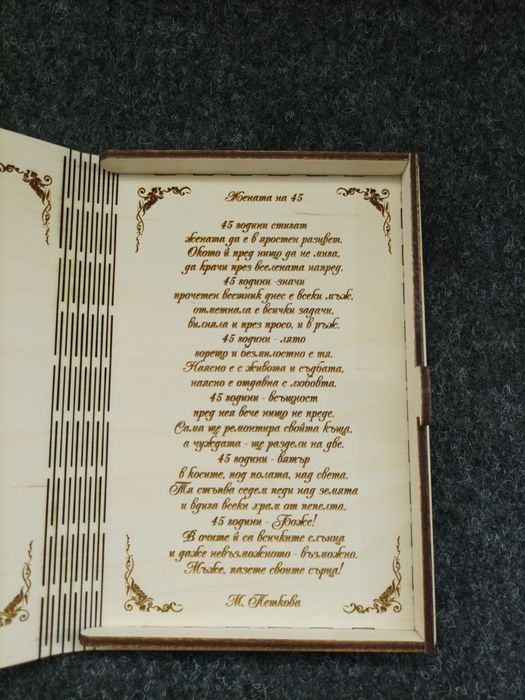 Жената на 45
45 години стигат
жената да е в яростен разцвет.
Окото ѝ пред нищо да не мига,
да крачи през вселената напред.
45 години -значи
прочетен вестник днес е всеки мъж,
отметнала е всички задачи,
вилняла и през просо, и в ръж.
45 години - лято
горещо и безмилостно е тя.
Наясно е с живота и съдбата,
наясно е отдавна с любовта.
45 години - всъщност
пред нея вече нищо не преде.
Сама ще ремонтира свойта къща,
а чуждата - ще раздели на две.
45 години - вятър
в косите, под полата, над света.
Тя стъпва седем педи над земята
и вдига всеки храм от пепелта.
45 години - Боже!
В очите ѝ са всичките слънца
и даже невъзможното - възможно.
Мъже, пазете своите сърца!
М. Петкова